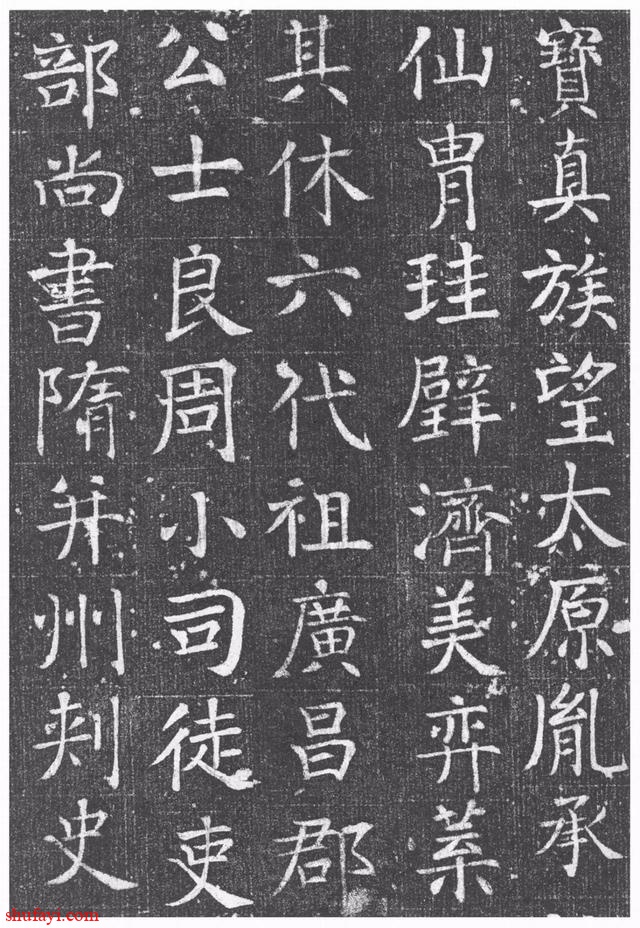 寶真族望太原胤承
仙胄珪璧濟美弈葉
其休六代祖廣昌郡
公士良周小司徒吏
部尚書隋并州刺史
shufayi.com